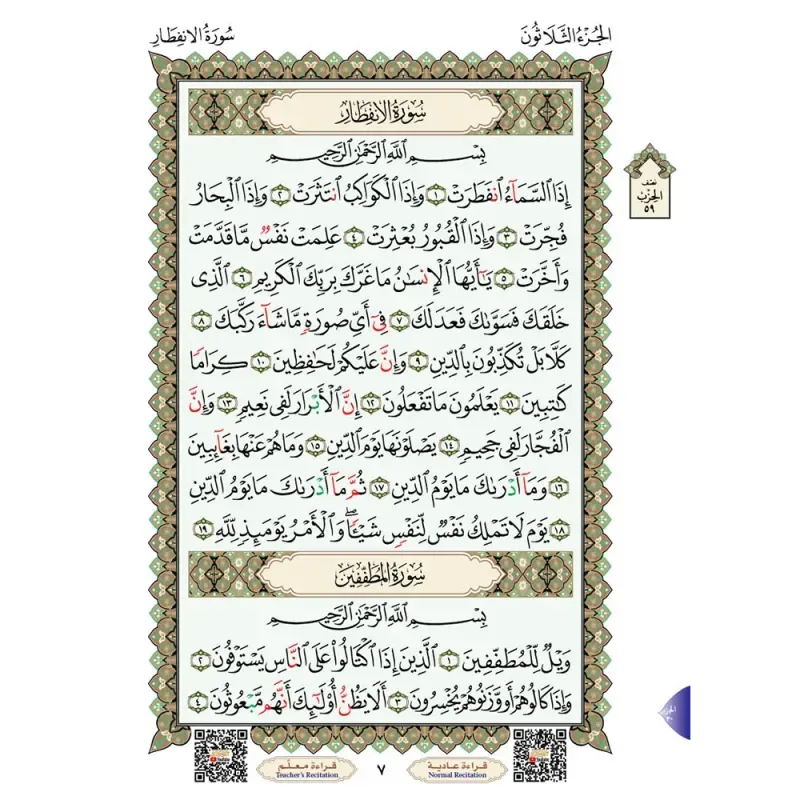 الجُزْءُ الثَّلَاثُونَ
سُورَةُ الانفِطَارِ
سُورَةُ الانفِطَارِ
بِسْمِ ٱللَّهِ ٱلرَّحْمَٰنِ ٱلرَّحِيمِ
إِذَا ٱلسَّمَآءُ ٱنفَطَرَتْ ١ وَإِذَا ٱلْكَوَاكِبُ ٱنتَثَرَتْ ٢ وَإِذَا ٱلْبِحَارُ
فُجِّرَتْ ٣ وَإِذَا ٱلْقُبُورُ بُعْثِرَتْ ٤ عَلِمَتْ نَفْسٌ مَّا قَدَّمَتْ
وَأَخَّرَتْ ٥ يَٰٓأَيُّهَا ٱلْإِنسَٰنُ مَا غَرَّكَ بِرَبِّكَ ٱلْكَرِيمِ ٦ ٱلَّذِى
خَلَقَكَ فَسَوَّىٰكَ فَعَدَلَكَ ٧ فِىٓ أَىِّ صُورَةٍ مَّا شَآءَ رَكَّبَكَ ٨
كَلَّا بَلْ تُكَذِّبُونَ بِٱلدِّينِ ٩ وَإِنَّ عَلَيْكُمْ لَحَٰفِظِينَ ١٠ كِرَامًا
كَٰتِبِينَ ١١ يَعْلَمُونَ مَا تَفْعَلُونَ ١٢ إِنَّ ٱلْأَبْرَارَ لَفِى نَعِيمٍ ١٣ وَإِنَّ
ٱلْفُجَّارَ لَفِى جَحِيمٍ ١٤ يَصْلَوْنَهَا يَوْمَ ٱلدِّينِ ١٥ وَمَا هُمْ عَنْهَا بِغَآئِبِينَ
١٦ وَمَآ أَدْرَىٰكَ مَا يَوْمُ ٱلدِّينِ ١٧ ثُمَّ مَآ أَدْرَىٰكَ مَا يَوْمُ ٱلدِّينِ
١٨ يَوْمَ لَا تَمْلِكُ نَفْسٌ لِّنَفْسٍ شَيْـًٔا ۖ وَٱلْأَمْرُ يَوْمَئِذٍ لِّلَّهِ ١٩
سُورَةُ المُطَفِّفِينَ
بِسْمِ ٱللَّهِ ٱلرَّحْمَٰنِ ٱلرَّحِيمِ
وَيْلٌ لِّلْمُطَفِّفِينَ ١ ٱلَّذِينَ إِذَا ٱكْتَالُوا۟ عَلَى ٱلنَّاسِ يَسْتَوْفُونَ ٢
وَإِذَا كَالُوهُمْ أَو وَّزَنُوهُمْ يُخْسِرُونَ ٣ أَلَا يَظُنُّ أُو۟لَٰٓئِكَ أَنَّهُم مَّبْعُوثُونَ ٤
نصف
الحزب
٥٩
الجزء
٣٠
قراءة عادية
Normal Recitation
٧
قراءة معلّم
Teacher's Recitation